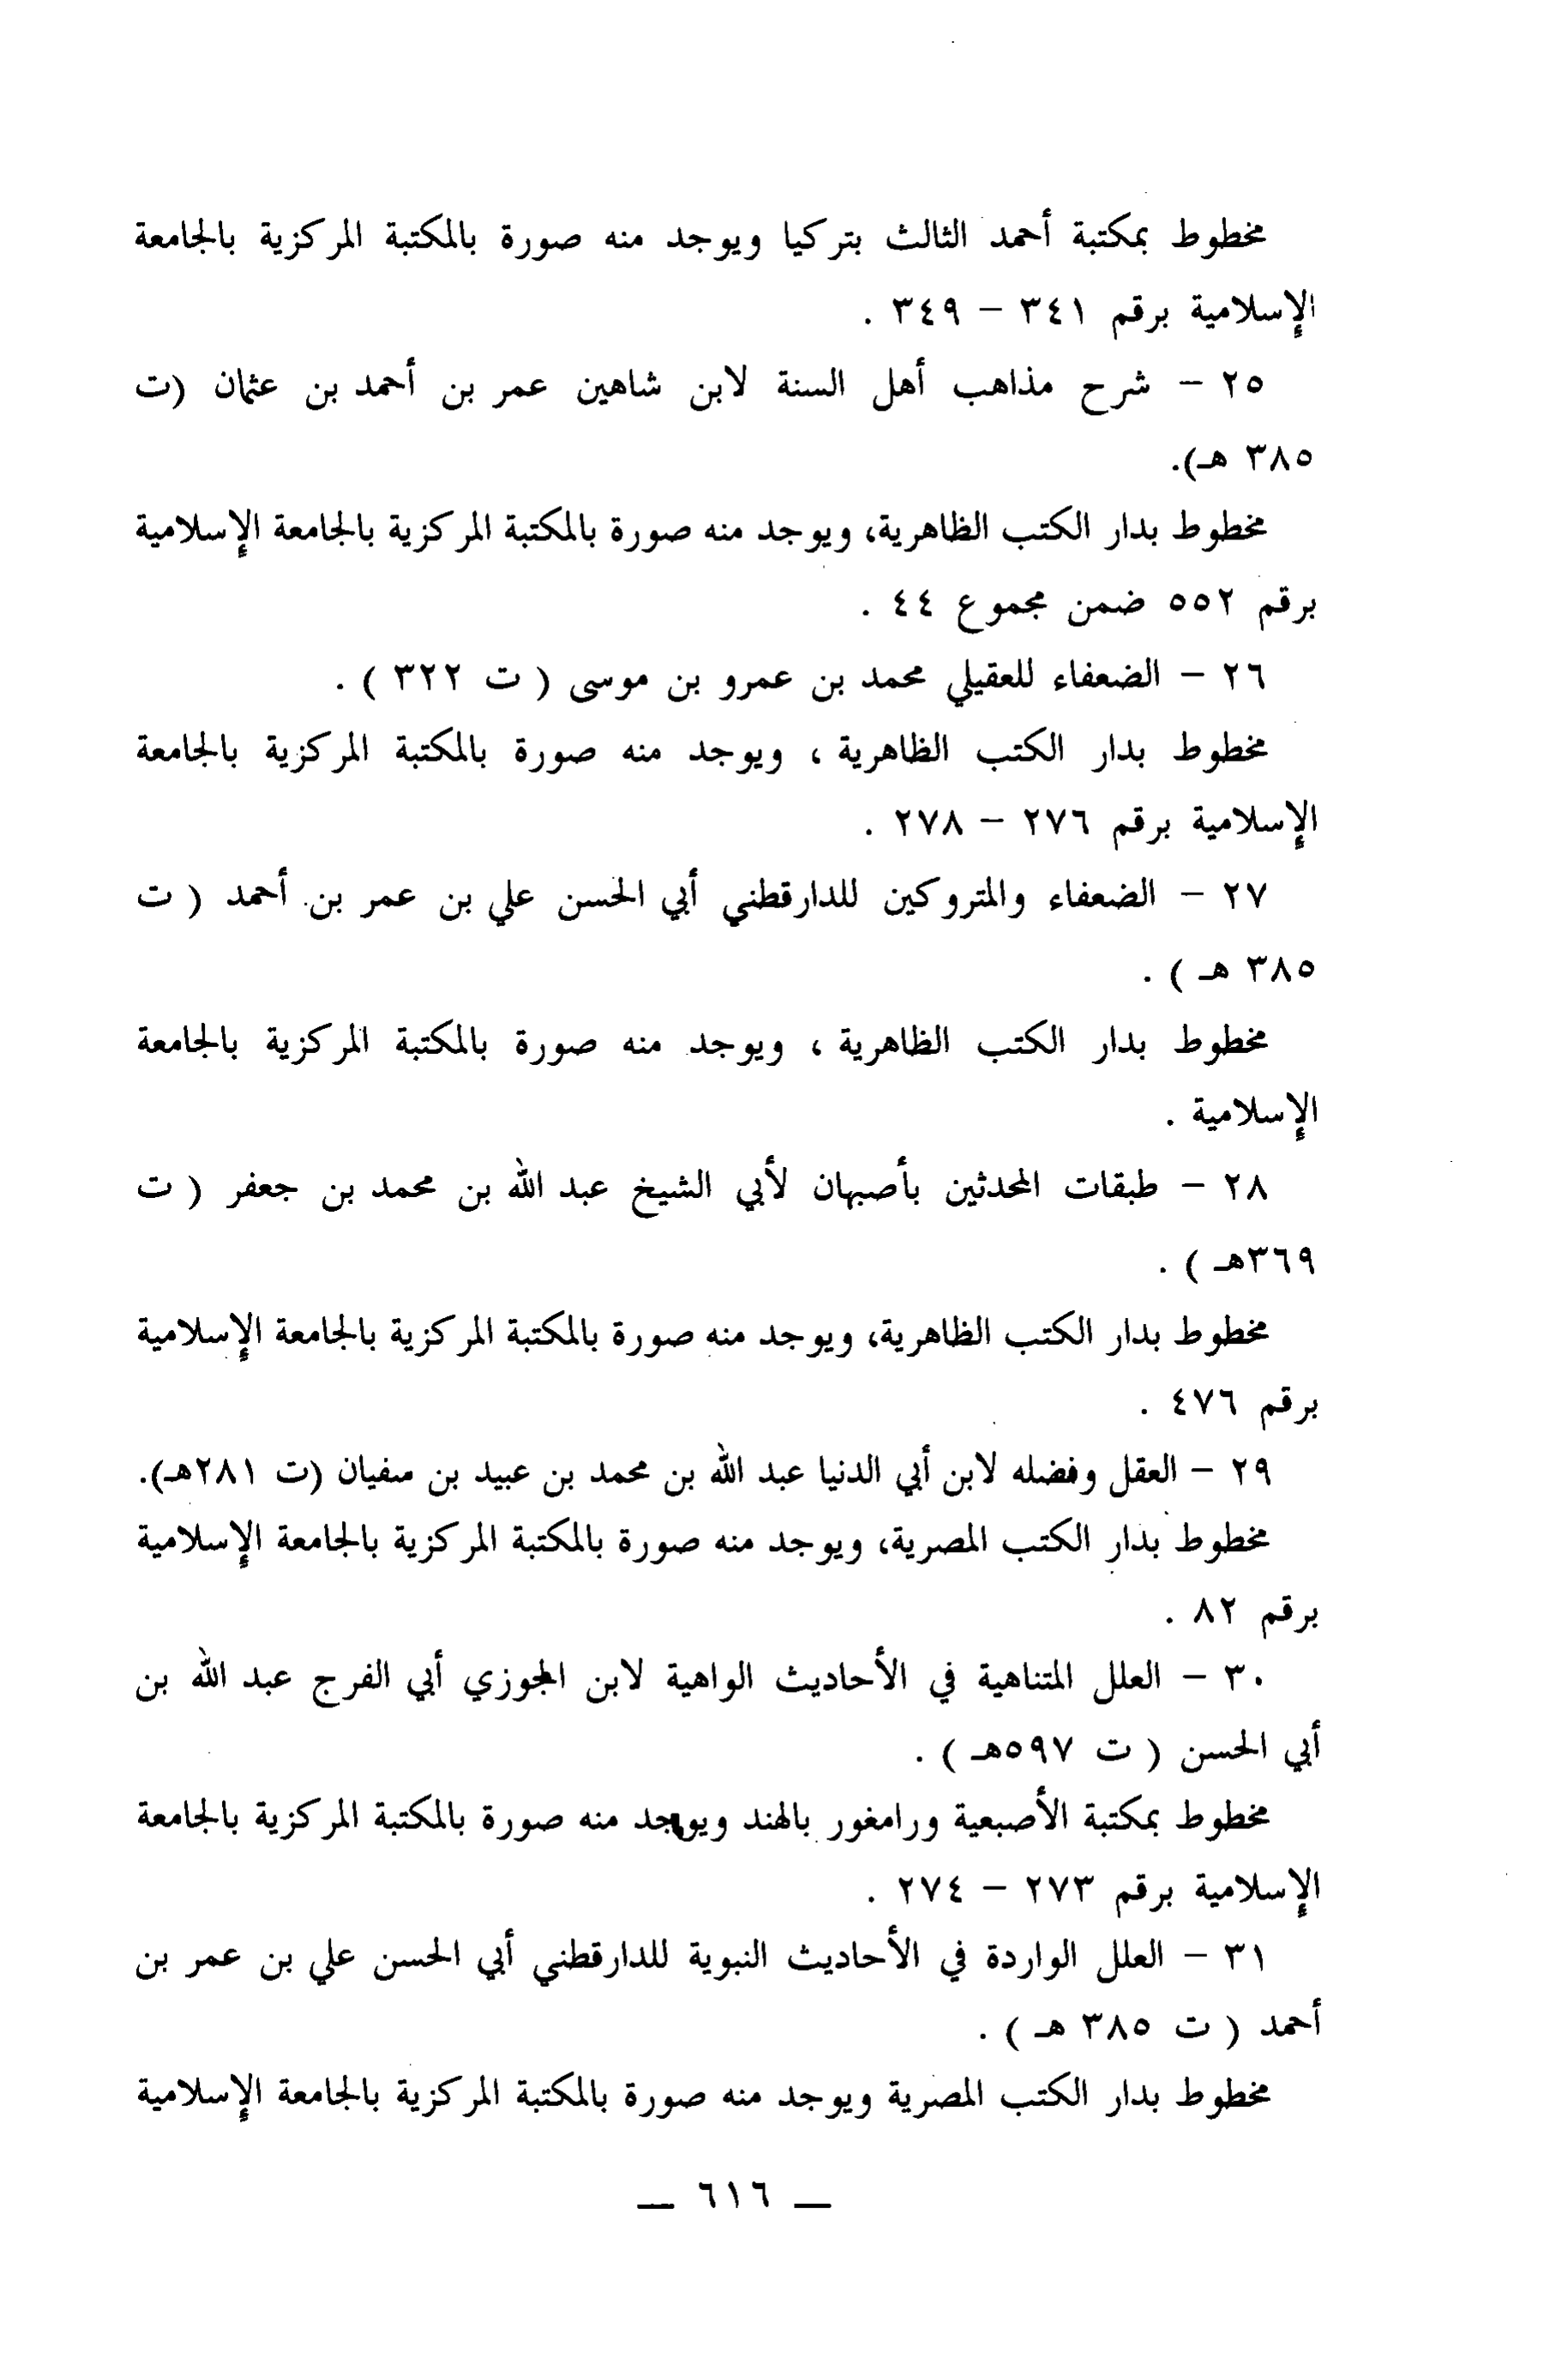 مخطوط بمكتبة أحمد الثالث بتركيا ويوجد منه صورة بالمكتبة المركزية بالجامعة
الإسلامية برقم ٣٤١ – ٣٤٩ .
٢٥ – شرح مذاهب أهل السنة لابن شاهين عمر بن أحمد بن عثمان (ت
٣٨٥ هـ).
مخطوط بدار الكتب الظاهرية، ويوجد منه صورة بالمكتبة المركزية بالجامعة الإسلامية
برقم ٥٥٢ ضمن مجموع ٤٤ .
٢٦ – الضعفاء للعقيلي محمد بن عمرو بن موسى ( ت ٣٢٢ ) .
مخطوط بدار الكتب الظاهرية ، ويوجد منه صورة بالمكتبة المركزية بالجامعة
الإسلامية برقم ٢٧٦ – ٢٧٨ .
٢٧ – الضعفاء والمتروكين للدارقطني أبي الحسن علي بن عمر بن أحمد ( ت
٣٨٥ هـ ) .
مخطوط بدار الكتب الظاهرية ، ويوجد منه صورة بالمكتبة المركزية بالجامعة
الإسلامية .
٢٨ – طبقات المحدثين بأصبهان لأبي الشيخ عبد الله بن محمد بن جعفر ( ت
٣٦٩هـ ) .
مخطوط بدار الكتب الظاهرية، ويوجد منه صورة بالمكتبة المركزية بالجامعة الإسلامية
برقم ٤٧٦ .
٢٩ – العقل وفضله لابن أبي الدنيا عبد الله بن محمد بن عبيد بن سفيان (ت ٢٨١هـ).
مخطوط بدار الكتب المصرية، ويوجد منه صورة بالمكتبة المركزية بالجامعة الإسلامية
برقم ٨٢ .
٣٠ – العلل المتناهية في الأحاديث الواهية لابن الجوزي أبي الفرج عبد الله بن
أبي الحسن ( ت ٥٩٧هـ ) .
مخطوط بمكتبة الأصبعية ورامغور بالهند ويوجد منه صورة بالمكتبة المركزية بالجامعة
الإسلامية برقم ٢٧٣ – ٢٧٤ .
٣١ – العلل الواردة في الأحاديث النبوية للدارقطني أبي الحسن علي بن عمر بن
أحمد ( ت ٣٨٥ هـ ) .
مخطوط بدار الكتب المصرية ويوجد منه صورة بالمكتبة المركزية بالجامعة الإسلامية
— ٦١٦ —